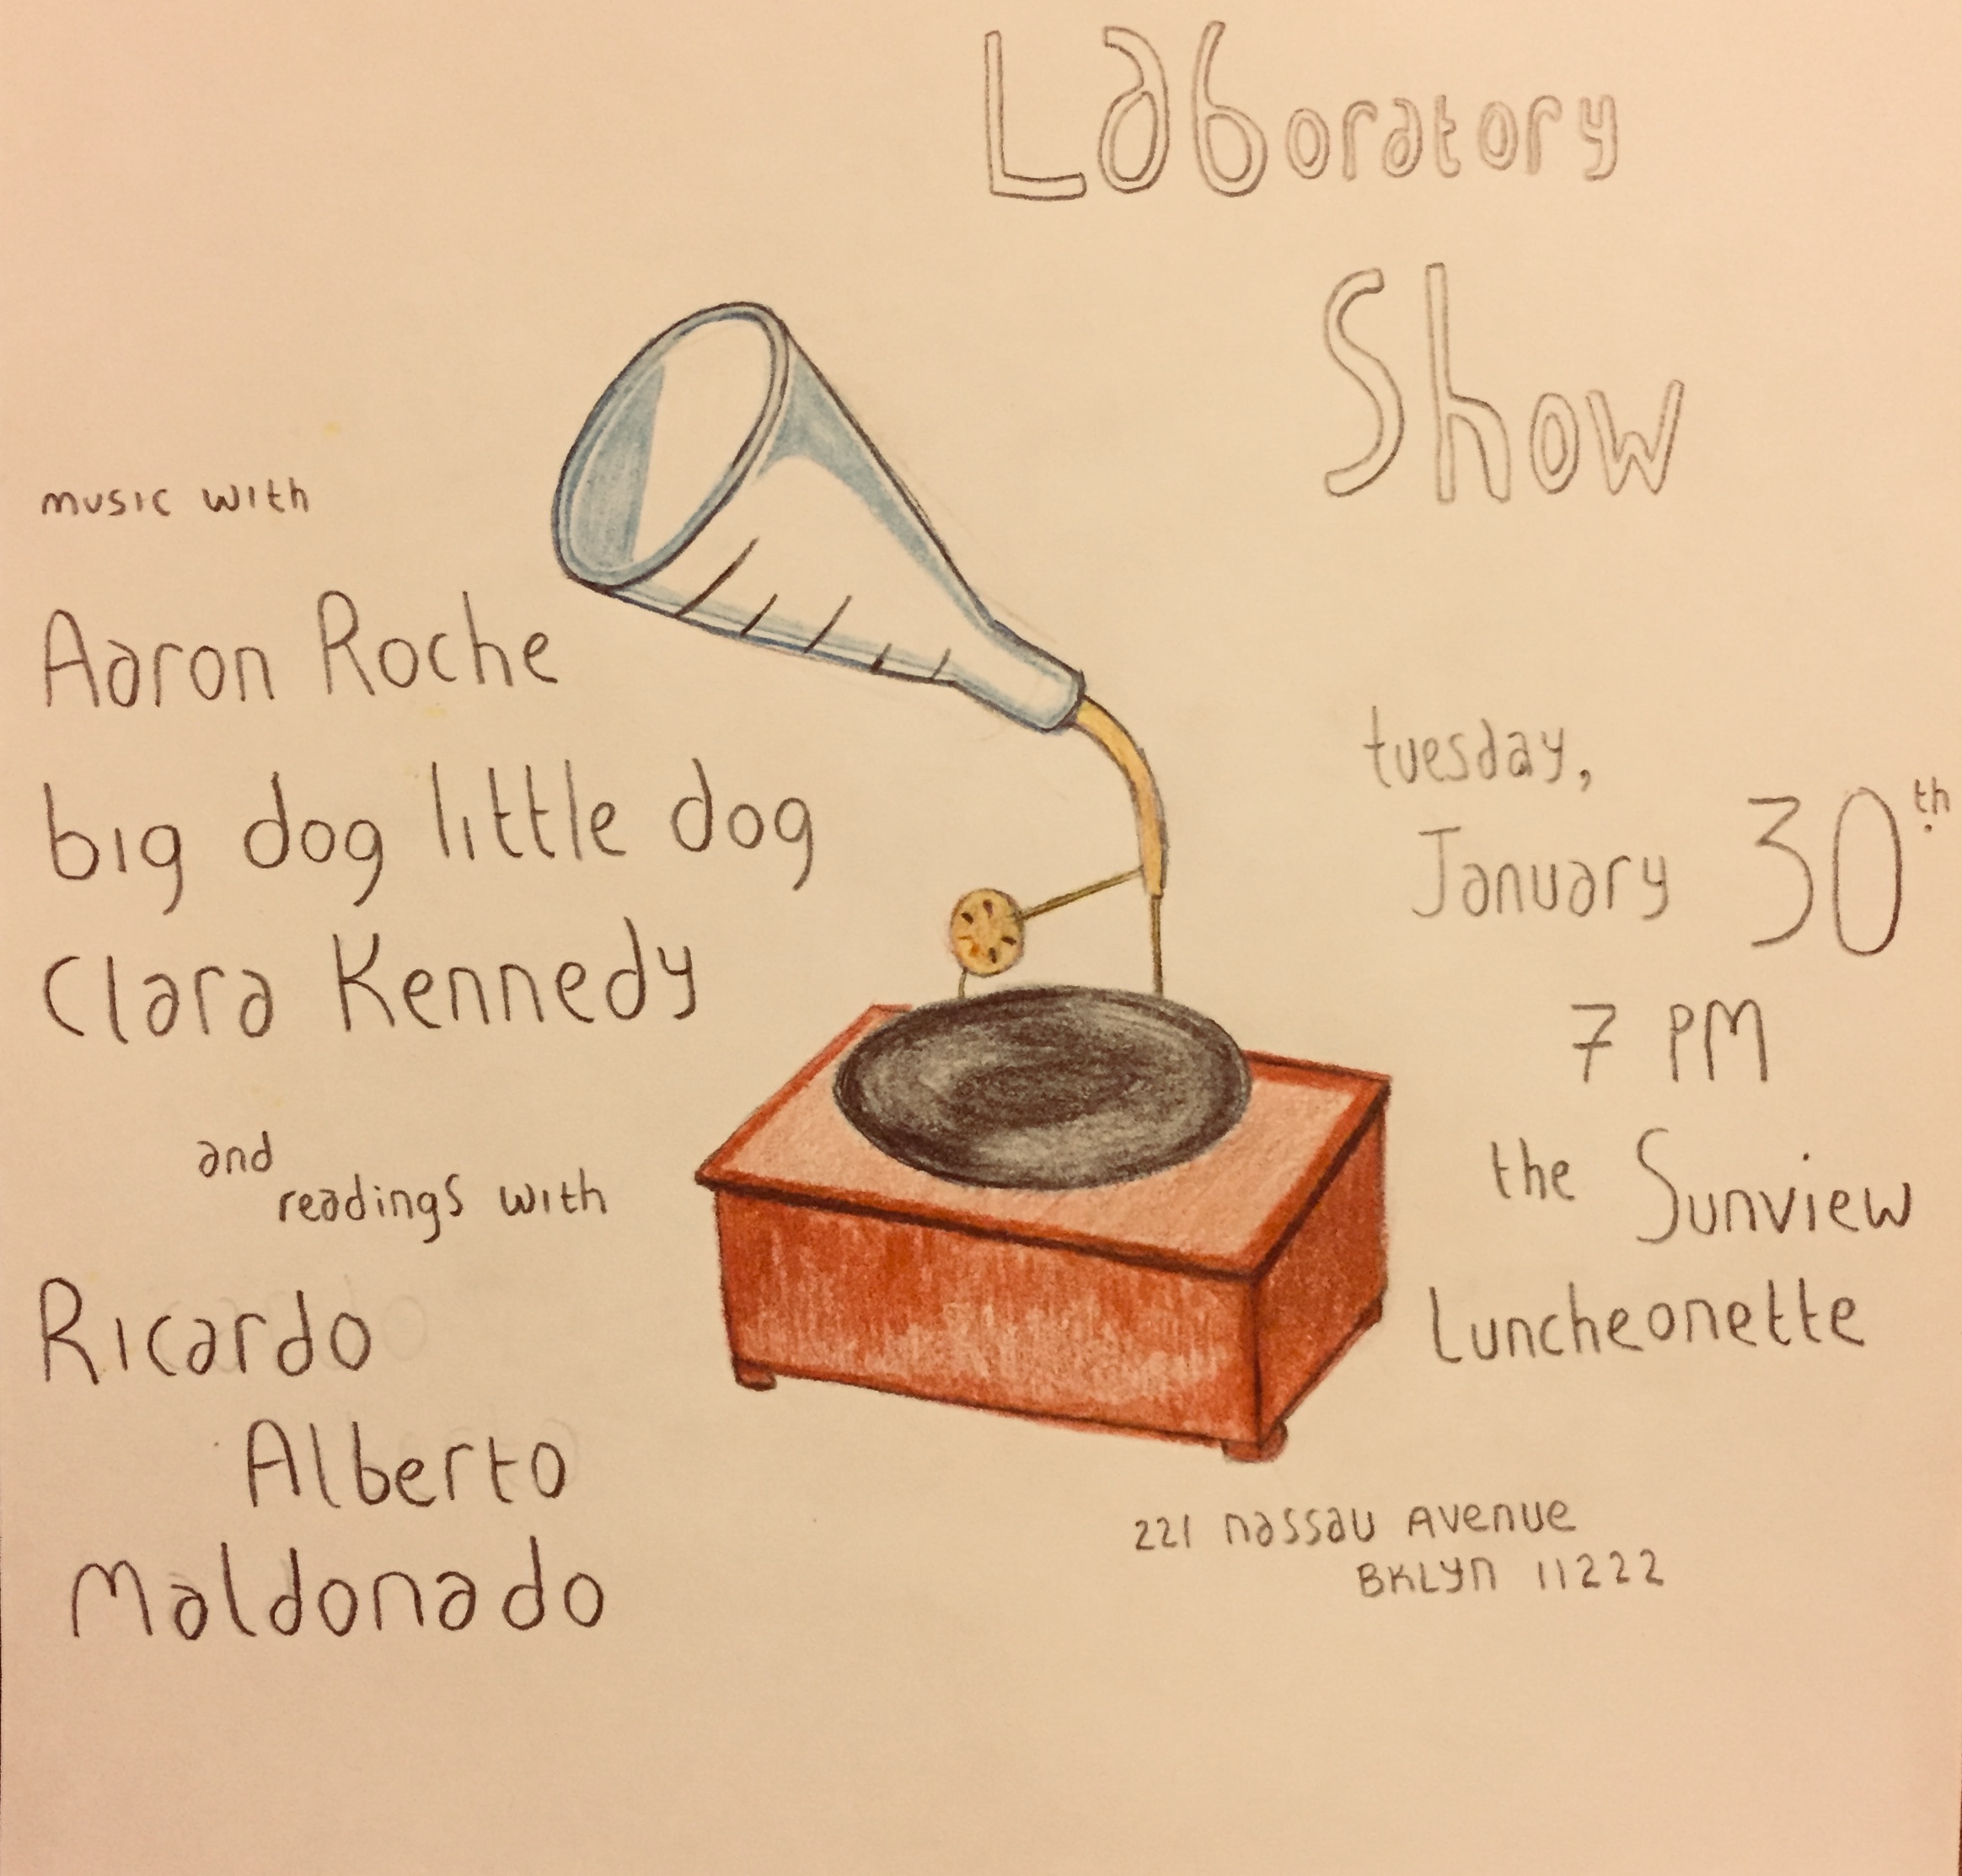 Laboratory
Show
music with
Aaron Roche
big dog little dog
Clara Kennedy
and
readings with
Ricardo
Alberto
Maldonado
tuesday,
January 30th
7 PM
the Sunview
Luncheonette
221 Nassau Avenue
BKLYn 11222